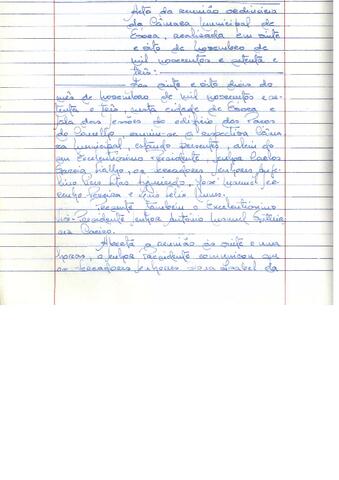 Acta da reunião ordinária
da Câmara Municipal de
Évora, realizada em vinte
e oito de Novembro de
mil novecentos e setenta e
três:
Aos vinte e oito dias do
mês de Novembro de mil novecentos e se-
tenta e três, nesta cidade de Évora e
sala das sessões do edifício dos Paços
do Concelho reuniu-se a respectiva Câma-
ra Municipal, estando presentes, além do
seu Excelentíssimo Presidente, senhor
os vereadores senhores
José Manuel
e
Presente também o Excelentíssimo
Vice-Presidente, senhor António Manuel
Aberta a reunião às vinte e uma
horas, o senhor Presidente comunicou que
os vereadores senhores Isabel da